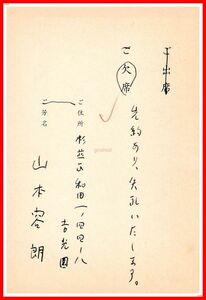 ご出席
ご欠席
先約あり、失礼いたします。
ご住所 杉並区和田一ノ四四ノ八
吉光園
ご芳名
山本容朗